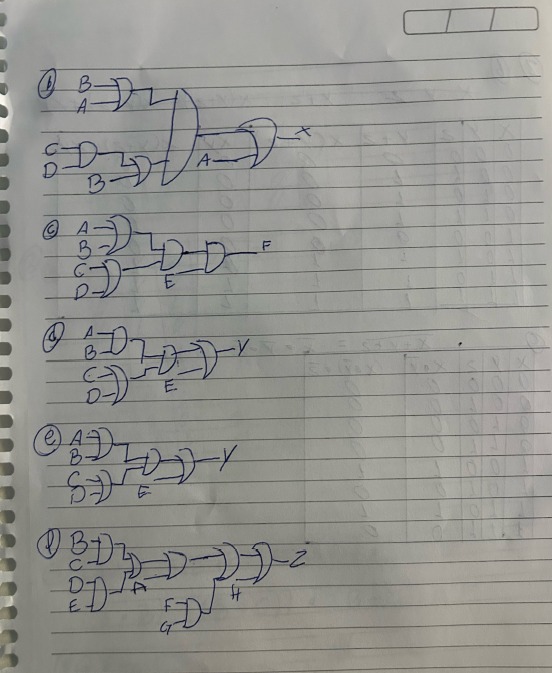 b B
A
C
D
B
A
X
c A
B
C
D
E
F
d A
B
C
D
E
Y
e A
B
C
D
E
Y
f B
C
D
E
A
F
G
H
Z